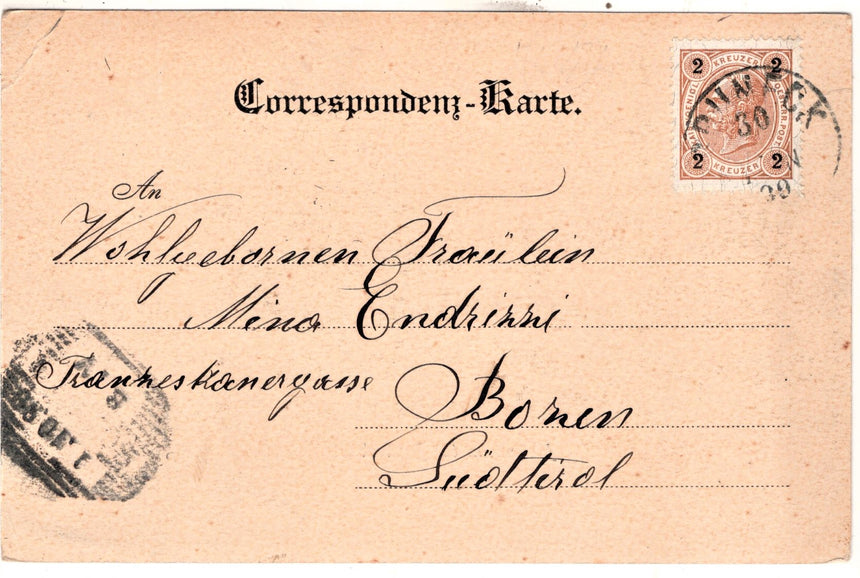 Correspondenz-Karte.
2 KREUZER 2
2 KREUZER 2
30
99
An
Wohlgebornen Fräulein
Mina Endrizzi
Franzeskanergasse
Bozen
Südtirol